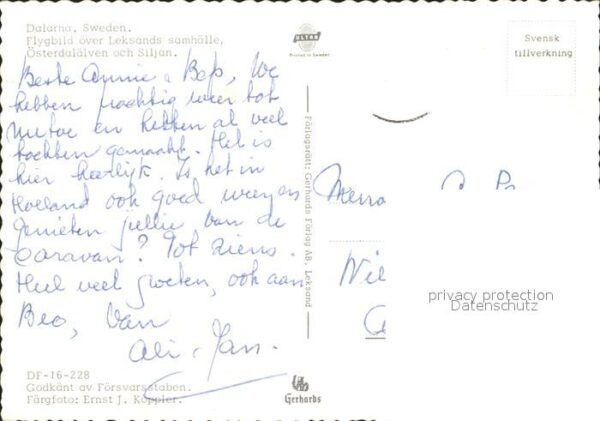 Dalarna, Sweden.
Flygbild över Leksands samhälle,
Österdalälven och Siljan.
ULTRA
Printed in Sweden
Svensk
tillverkning
Beste Annie & Bep, We
hebben prachtig weer tot
nu toe en hebben al veel
tochten gemaakt. Het is
hier heerlijk. Is het in
Holland ook goed weer en
genieten jullie van de
caravan? Tot ziens.
Heel veel groeten, ook aan
Beo, van
Ali & Jan.
DF-16-228
Godkänt av Försvarsstaben.
Färgfoto: Ernst J. Köppler.
Förlagsrätt: Gerhards Förlag AB, Leksand
Gerhards
privacy protection
Datenschutz